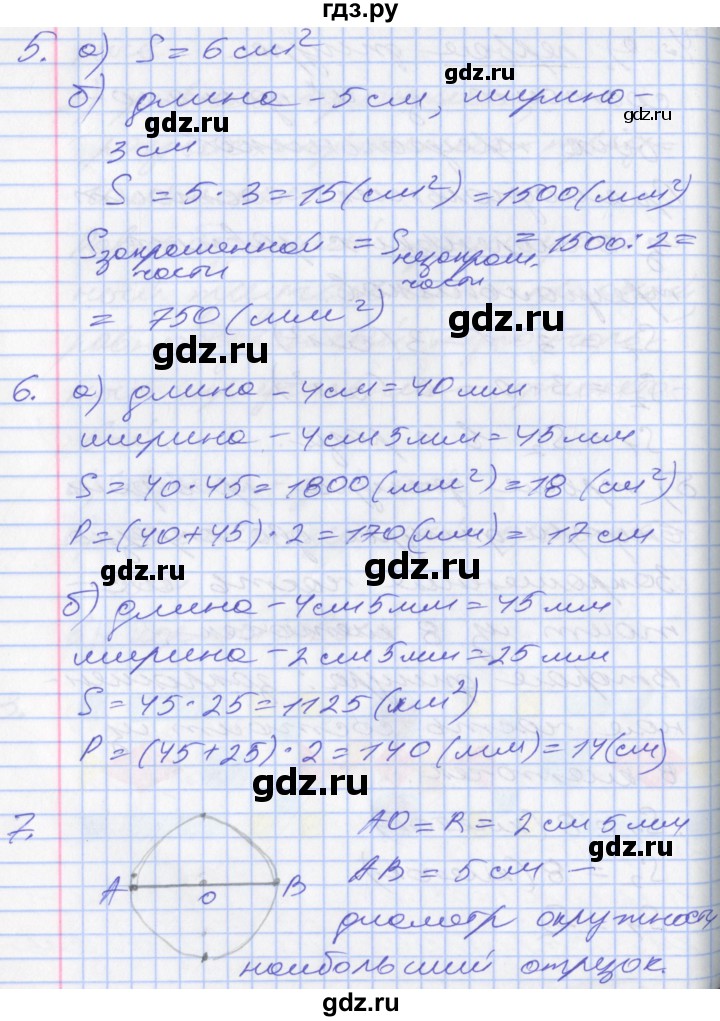 гдз.ру
5. а) S = 6 см²
gdz.ru
gdz.ru
б) длина - 5 см, ширина -
gdz.ru
gdz.ru
3 см
S = 5 · 3 = 15 (см²) = 1500 (мм²)
Sзакрашенной части = Sнезакраш. части = 1500 : 2 =
= 750 (мм²)
gdz.ru
gdz.ru
6. а) длина - 4 см = 40 мм
gdz.ru
ширина - 4 см 5 мм = 45 мм
gdz.ru
S = 40 · 45 = 1800 (мм²) = 18 (см²)
P = (40 + 45) · 2 = 170 (мм) = 17 см
gdz.ru
gdz.ru
б) длина - 4 см 5 мм = 45 мм
ширина - 2 см 5 мм = 25 мм
S = 45 · 25 = 1125 (мм²)
gdz.ru
P = (45 + 25) · 2 = 140 (мм) = 14 (см)
gdz.ru
7.
AO = R = 2 см 5 мм
gdz.ru
A O B
AB = 5 см —
диаметр окружности
наибольший отрезок.
gdz.ru
gdz.ru